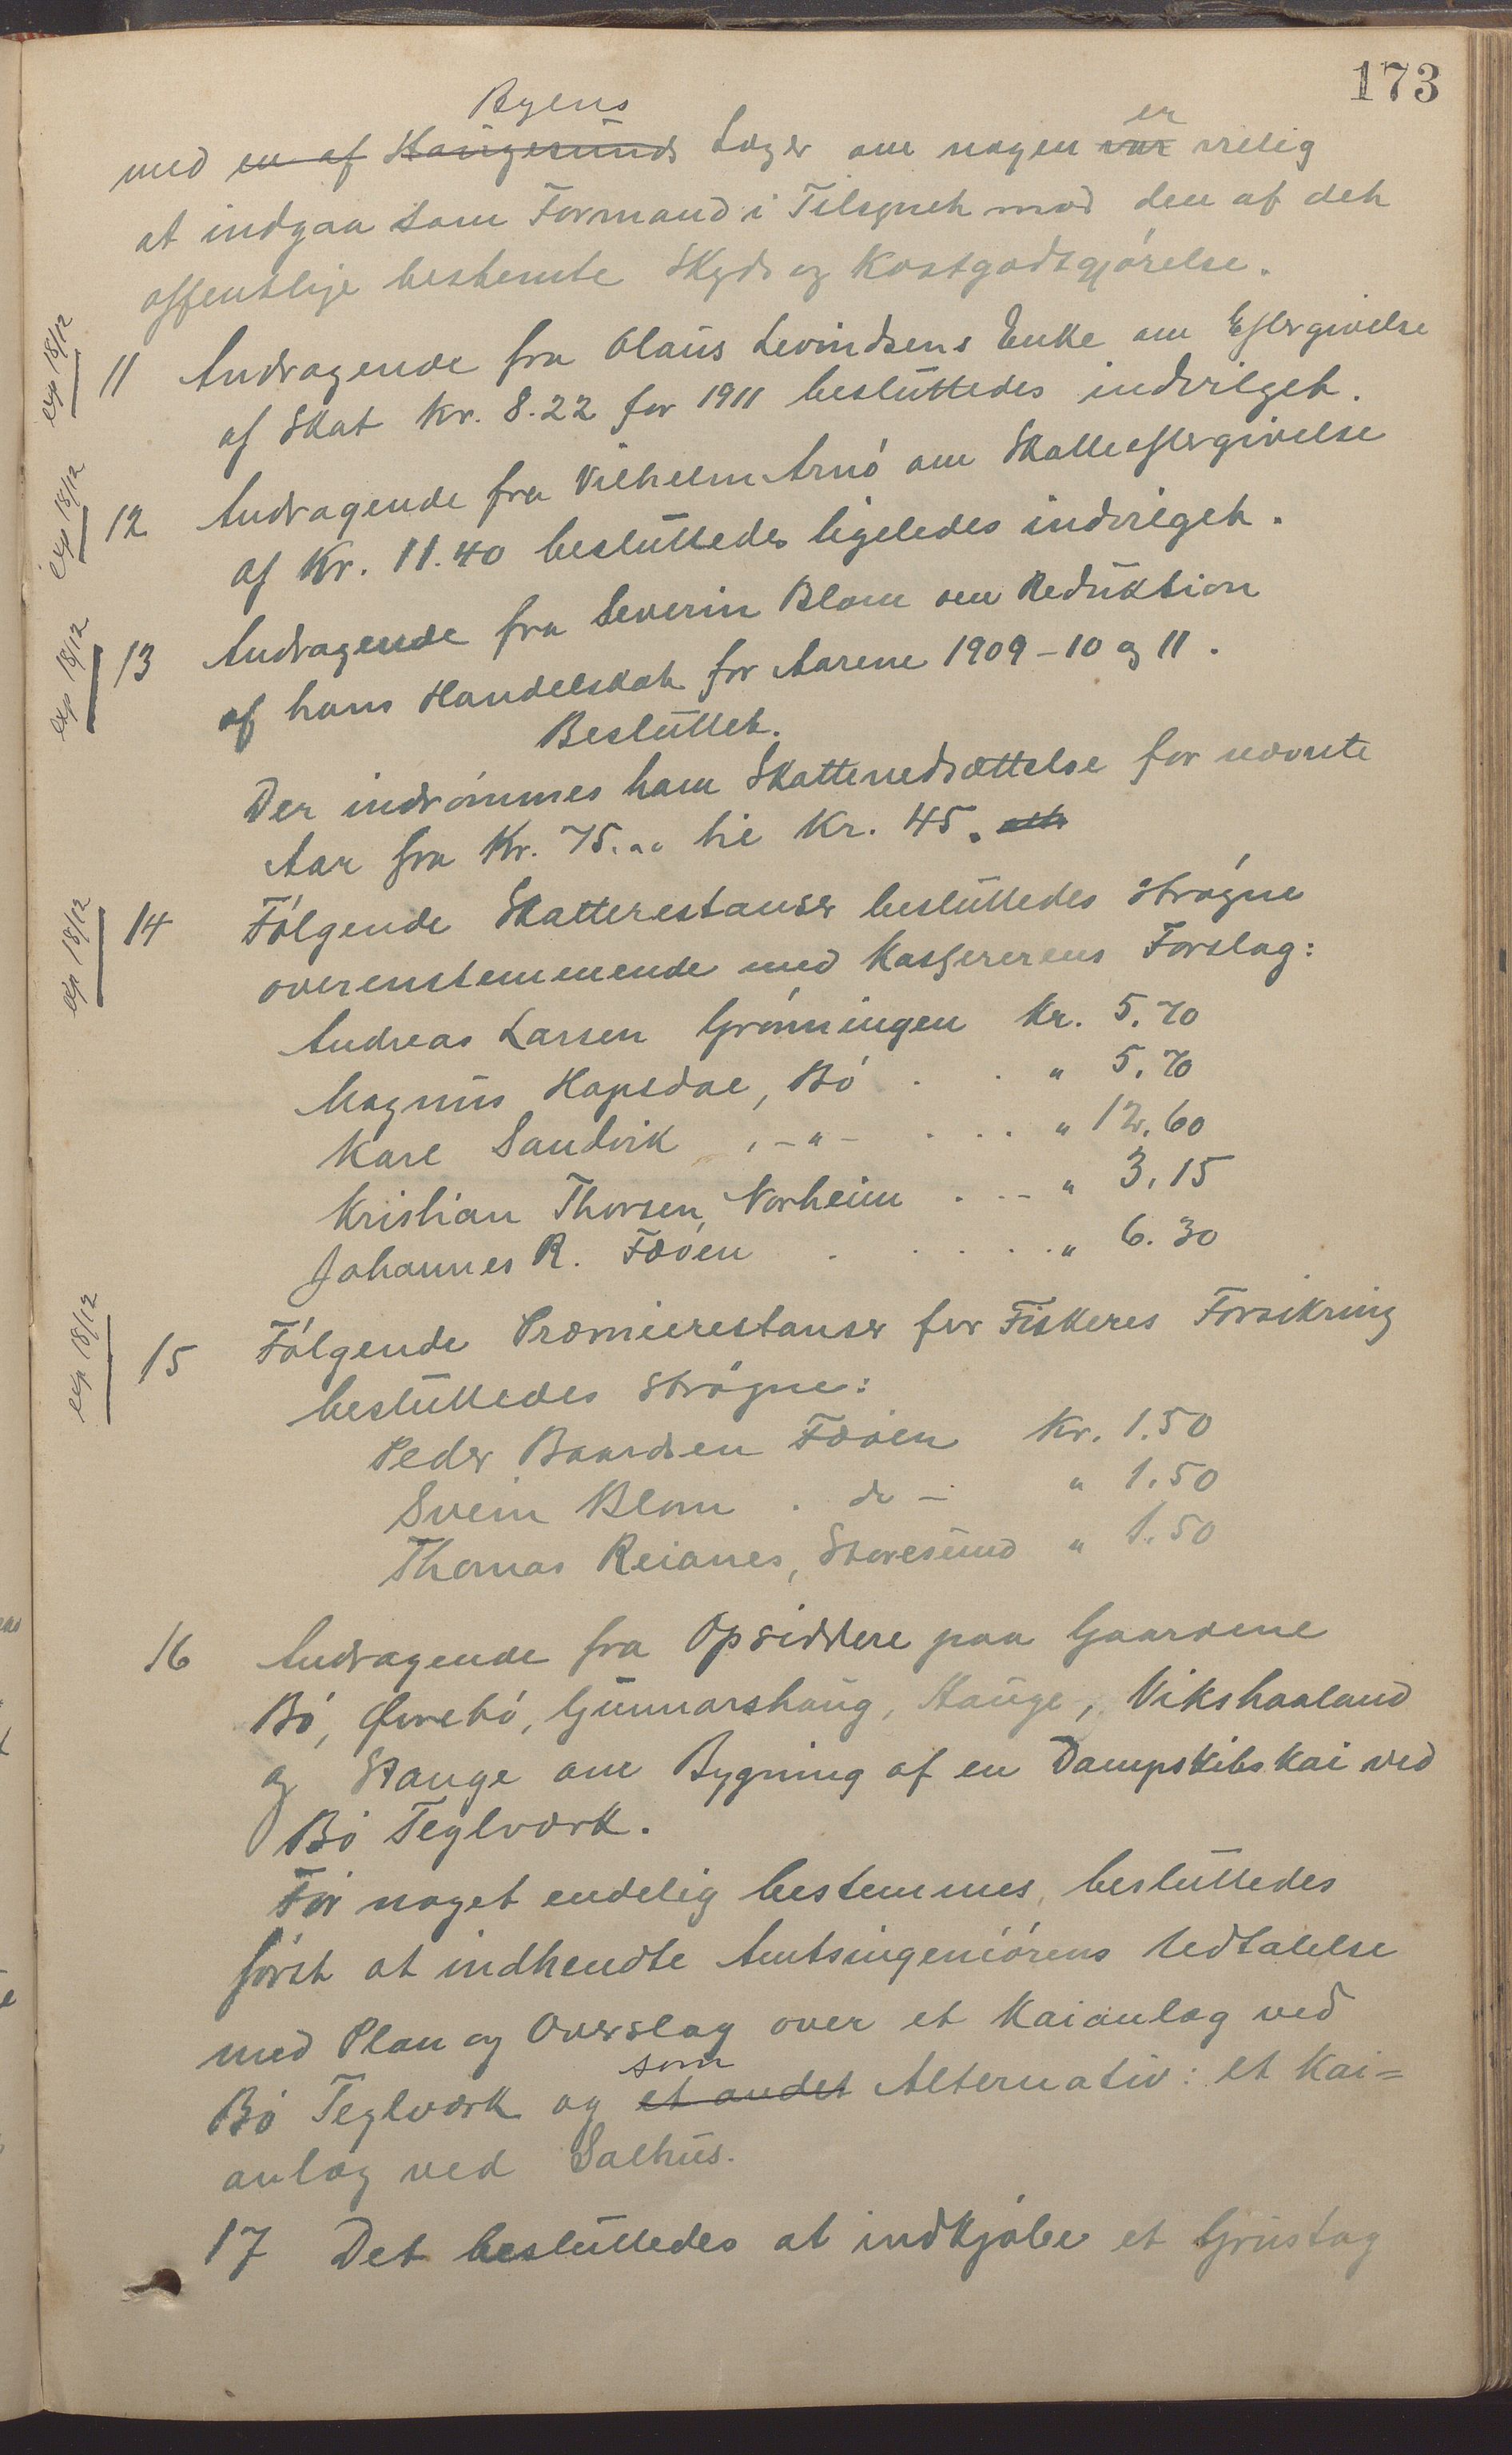 173
Byens er
med en af Haugesunds Læger om nogen var villig
at indgaa som Formand i Tilsynet mod den af det
offentlige bestemte Skyds og Kostgodtgjörelse.
exp 18/12
11 Andragende fra Olaus Levindsens Enke om Eftergivelse
af Skat Kr. 8.22 for 1911 besluttedes indvilget.
exp 18/12
12 Andragende fra Vilhelm Arnö om Skatteeftergivelse
af Kr. 11.40 besluttedes ligeledes indvilget.
exp 18/12
13 Andragende fra Severin Blom om Reduktion
af hans Handelskat for Aarene 1909-10 og 11.
Besluttet.
Der indrömmes ham Skattenedsættelse for nævnte
Aar fra Kr. 75... til Kr. 45.
exp 18/12
14 Fölgende Skatterestanser besluttedes strögne
overenstemmende med Kasfererens Forslag:
Andreas Larsen Grönningen Kr. 5.70
Magnus Hapsdal, Bö . . " 5.70
Karl Sandvik , -"- . . . " 12.60
Kristian Thorsen, Norheim . . - " 3.15
Johannes R. Fæöen . . . . . " 6.30
exp 18/12
15 Fölgende Præmierestanser for Fiskeres Forsikring
besluttedes strögne:
Peder Baardsen Fæöen Kr. 1.50
Svein Blom . do - " 1.50
Thomas Reianes, Storesund " 1.50
16 Andragende fra Opsiddere paa Gaardene
Bö, Øvrebö, Gunnarshaug, Hauge, Vikshaaland
og Stange om Bygning af en Dampskibskai ved
Bö Teglværk.
För noget endelig bestemmes, besluttedes
först at indhendte Amtsingeniörens Udtalelse
med Plan og Overslag over et Kaianlæg ved
som
Bö Teglværk og et andet Alternativ: et Kai=
anlæg ved Salhus.
17 Det besluttedes at indkjöbe et Grustag